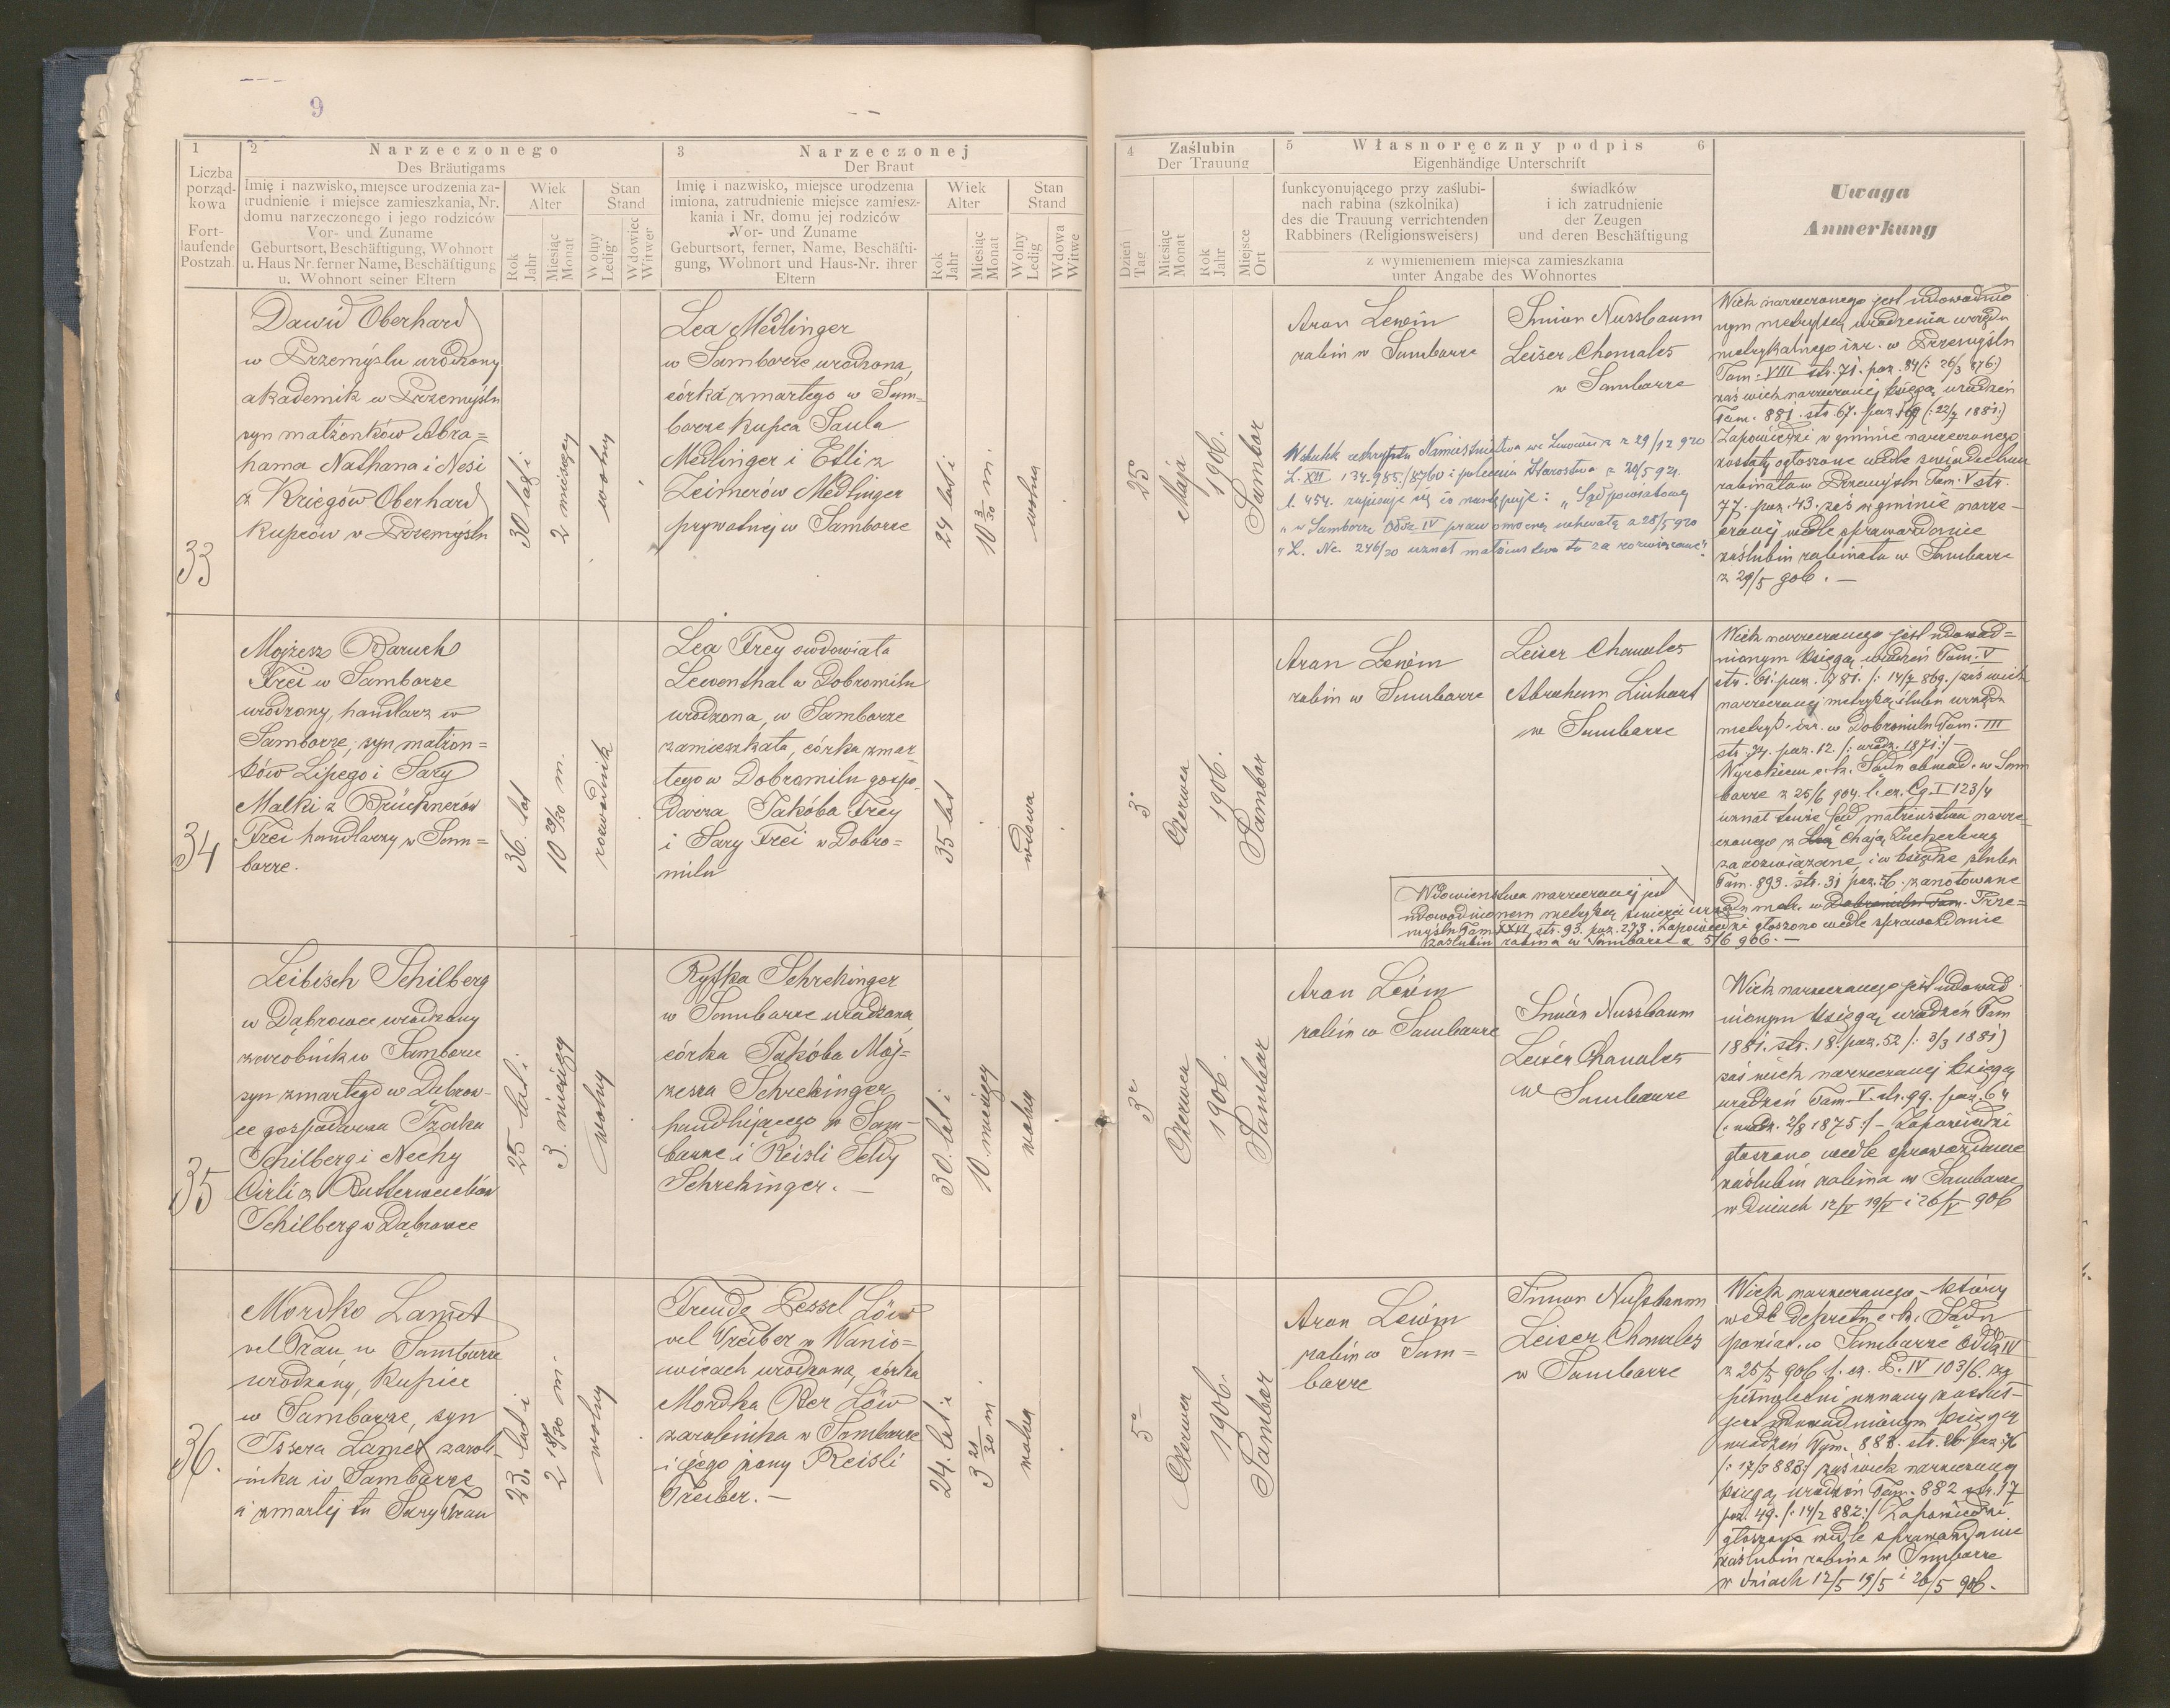 9
1
Liczba
porząd-
kowa
Fort-
laufende
Postzah
2
Narzeczonego
Des Bräutigams
Imię i nazwisko, miejsce urodzenia za-
trudnienie i miejsce zamieszkania, Nr.
domu narzeczonego i jego rodziców
Vor- und Zuname
Geburtsort, Beschäftigung, Wohnort
u. Haus Nr. ferner Name, Beschäftigung
u. Wohnort seiner Eltern
Wiek
Alter
Rok
Jahr
Miesiąc
Monat
Stan
Stand
Wolny
Ledig
Wdowiec
Witwer
3
Narzeczonej
Der Braut
Imię i nazwisko, miejsce urodzenia
imiona, zatrudnienie miejsce zamiesz-
kania i Nr. domu jej rodziców
Vor- und Zuname
Geburtsort, ferner, Name, Beschäfti-
gung, Wohnort und Haus-Nr. ihrer
Eltern
Wiek
Alter
Rok
Jahr
Miesiąc
Monat
Stan
Stand
Wolny
Ledig
Wdowa
Witwe
4
Zaślubin
Der Trauung
Dzień
Tag
Miesiąc
Monat
Rok
Jahr
Miejsce
Ort
5
Własnoręczny podpis
6
Eigenhändige Unterschrift
funkcyonującego przy zaślubi-
nach rabina (szkolnika)
des die Trauung verrichtenden
Rabbiners (Religionsweisers)
świadków
i ich zatrudnienie
der Zeugen
und deren Beschäftigung
z wymienieniem miejsca zamieszkania
unter Angabe des Wohnortes
Uwaga
Anmerkung
33
Dawid Oberhard
w Przemyślu urodzony
akademik w Przemyślu
syn małżonków Abra=
hama Nathana i Nesi
z Kriegów Oberhard
kupców w Przemyślu
30 lat i
2 miesięcy
wolny
Lea Medlinger
w Samborze urodzona,
córka zmarłego w Sam=
borze kupca Saula
Medlinger i Etli z
Leimerów Medlinger
prywatnej w Samborze
24 lat i
10 3/30 m.
wolna
25
Maja
1906.
Sambor
Aron Lewin
rabin w Samborze
Simon Nussbaum
Leiser Chamales
w Samborze
Wskutek reskryptu Namiestnictwa we Lwowie z 29/12 920
L. XII 134.985/8760 i polecenia Starostwa z 20/5 921.
l. 454. zapisuje się co następuje: „Sąd powiatowy
„w Samborze Oddz IV prawomocną uchwałą z 28/5 920
„L. Nc. 246/20 uznał małżeństwo to za rozwiązane".
Wiek narzeczonego jest udowodnio
nym metryką urodzenia urzędu
metrykalnego izr. w Przemyślu
Tom. VIII str. 71. poz. 84 (: 26/3 876:)
zaś wiek narzeczonej księgą urodzeń
Tom. 881. str. 67. poz. 169 (: 22/7 1881:)
Zapowiedzi w gminie narzeczonego
zostały ogłoszone wedle świadectwa
rabinatu w Przemyślu Tom. V str.
77. poz. 43. zaś w gminie narze-
czonej wedle sprawozdanie
zaślubin rabinatu w Samborze
z 29/5 906. —
34
Mojżesz Baruch
Frei w Samborze
urodzony, handlarz w
Samborze, syn małżon=
ków Lipego i Sary
Malki z Brücknerów
Frei handlarzy w Sam=
borze.
36. lat
10 20/30 m.
rozwodnik
Lea Frey owdowiała
Lewenthal w Dobromilu
urodzona, w Samborze
zamieszkała, córka zmar
łego w Dobromilu gospo-
darza Jakóba Frey
i Sary Frei w Dobro=
milu
35 lat
wdowa
3
Czerwca
1906.
Sambor
Aron Lewin
rabin w Samborze
Leiser Chamales
Abraham Linhard
w Samborze
Wiek narzeczonego jest udowod=
nionym księgą urodzeń Tom. V
str. 61. poz. 481. /: 14/7 869. / zaś wiek
narzeczonej metryką ślubu urzędu
metryk. izr. w Dobromilu Tom. III
str. 74. poz. 12. /: urodz. 1871:/ —
Wyrokiem c. k. Sądu obwod. w Sam
borze z 25/6 904. l. cz. Cg. I 123/4
uznał tenże Sąd małżeństwo narze-
czonego z Leą Chają Zuckerberg
za rozwiązane, i w księdze ślubu
Tom. 893. str. 31 poz. 56. zanotowane
Wdowieństwo narzeczonej jest
udowodnionem metryką śmierci urzędu metr. w Dobromilu Tom. Prze=
myślu Tom XXVI, str. 93. poz. 273. Zapowiedzi głoszono wedle sprawozdanie
zaślubin rabina w Samborze z 5/6 906. —
35
Leibisch Schilberg
w Dąbrowce urodzony
zarobnik w Samborze
syn zmarłego w Dąbrow-
ce gospodarza Izaka
Schilberg i Nechy
Cirli z Butterweichów
Schilberg w Dąbrowce
25 lat i
3. miesięcy
wolny
Ryfka Schrekinger
w Samborze urodzona
córka Jakóba Moj-
żesza Schrekinger
handlującego w Sam-
borze i Reisli Seldy
Schrekinger. —
30. lat i
10. miesięcy
wolna
3
Czerwca
1906.
Sambor
Aron Lewin
rabin w Samborze
Simon Nussbaum
Leiser Chamales
w Samborze
Wiek narzeczonego jest udowod
nionym księgą urodzeń Tom
1881. str. 18. poz. 52 /: 3/3 1881)
zaś wiek narzeczonej księgą
urodzeń Tom. V. str. 99. poz. 64
(: urodz. 2/8 1875:/ — Zapowiedzi
głoszono wedle sprawozdanie
zaślubin rabina w Samborze
w dniach 12/V 19/V i 26/V 906
36.
Mordko Lamet
vel Frau w Samborze
urodzony, kupiec
w Samborze, syn
Issera Lamet zarob-
nika w Samborze
i zmarłej tu Sary Frau
23. lat i
2 18/30 m.
wolny
Freude Pessel Löw
vel Treiber w Wanio=
wicach urodzona, córka
Mordka Ber Löw
zarobnika w Samborze
i jego żony Reisli
Treiber. —
24. lat i
3 21/30 m
wolna
5
Czerwca
1906.
Sambor
Aron Lewin
rabin w Sam=
borze
Simon Nussbaum
Leiser Chamales
w Samborze
Wiek narzeczonego — który
wedł. dekretu c. k. Sądu
powiat. w Samborze Oddz IV
z 25/5 906 l. cz. P. IV 103/6. za
pełnoletni uznany został —
jest udowodnionym księgą
urodzeń Tom. 883. str. 26. poz. 76
/: 17/3 883:/ zaś wiek narzeczonej
księgą urodzeń Tom. 882 str. 17
poz. 49. /: 14/2 882:/ Zapowiedzi
głoszono wedle sprawozdanie
zaślubin rabina w Samborze
w dniach 12/5 19/5 i 26/5 906.